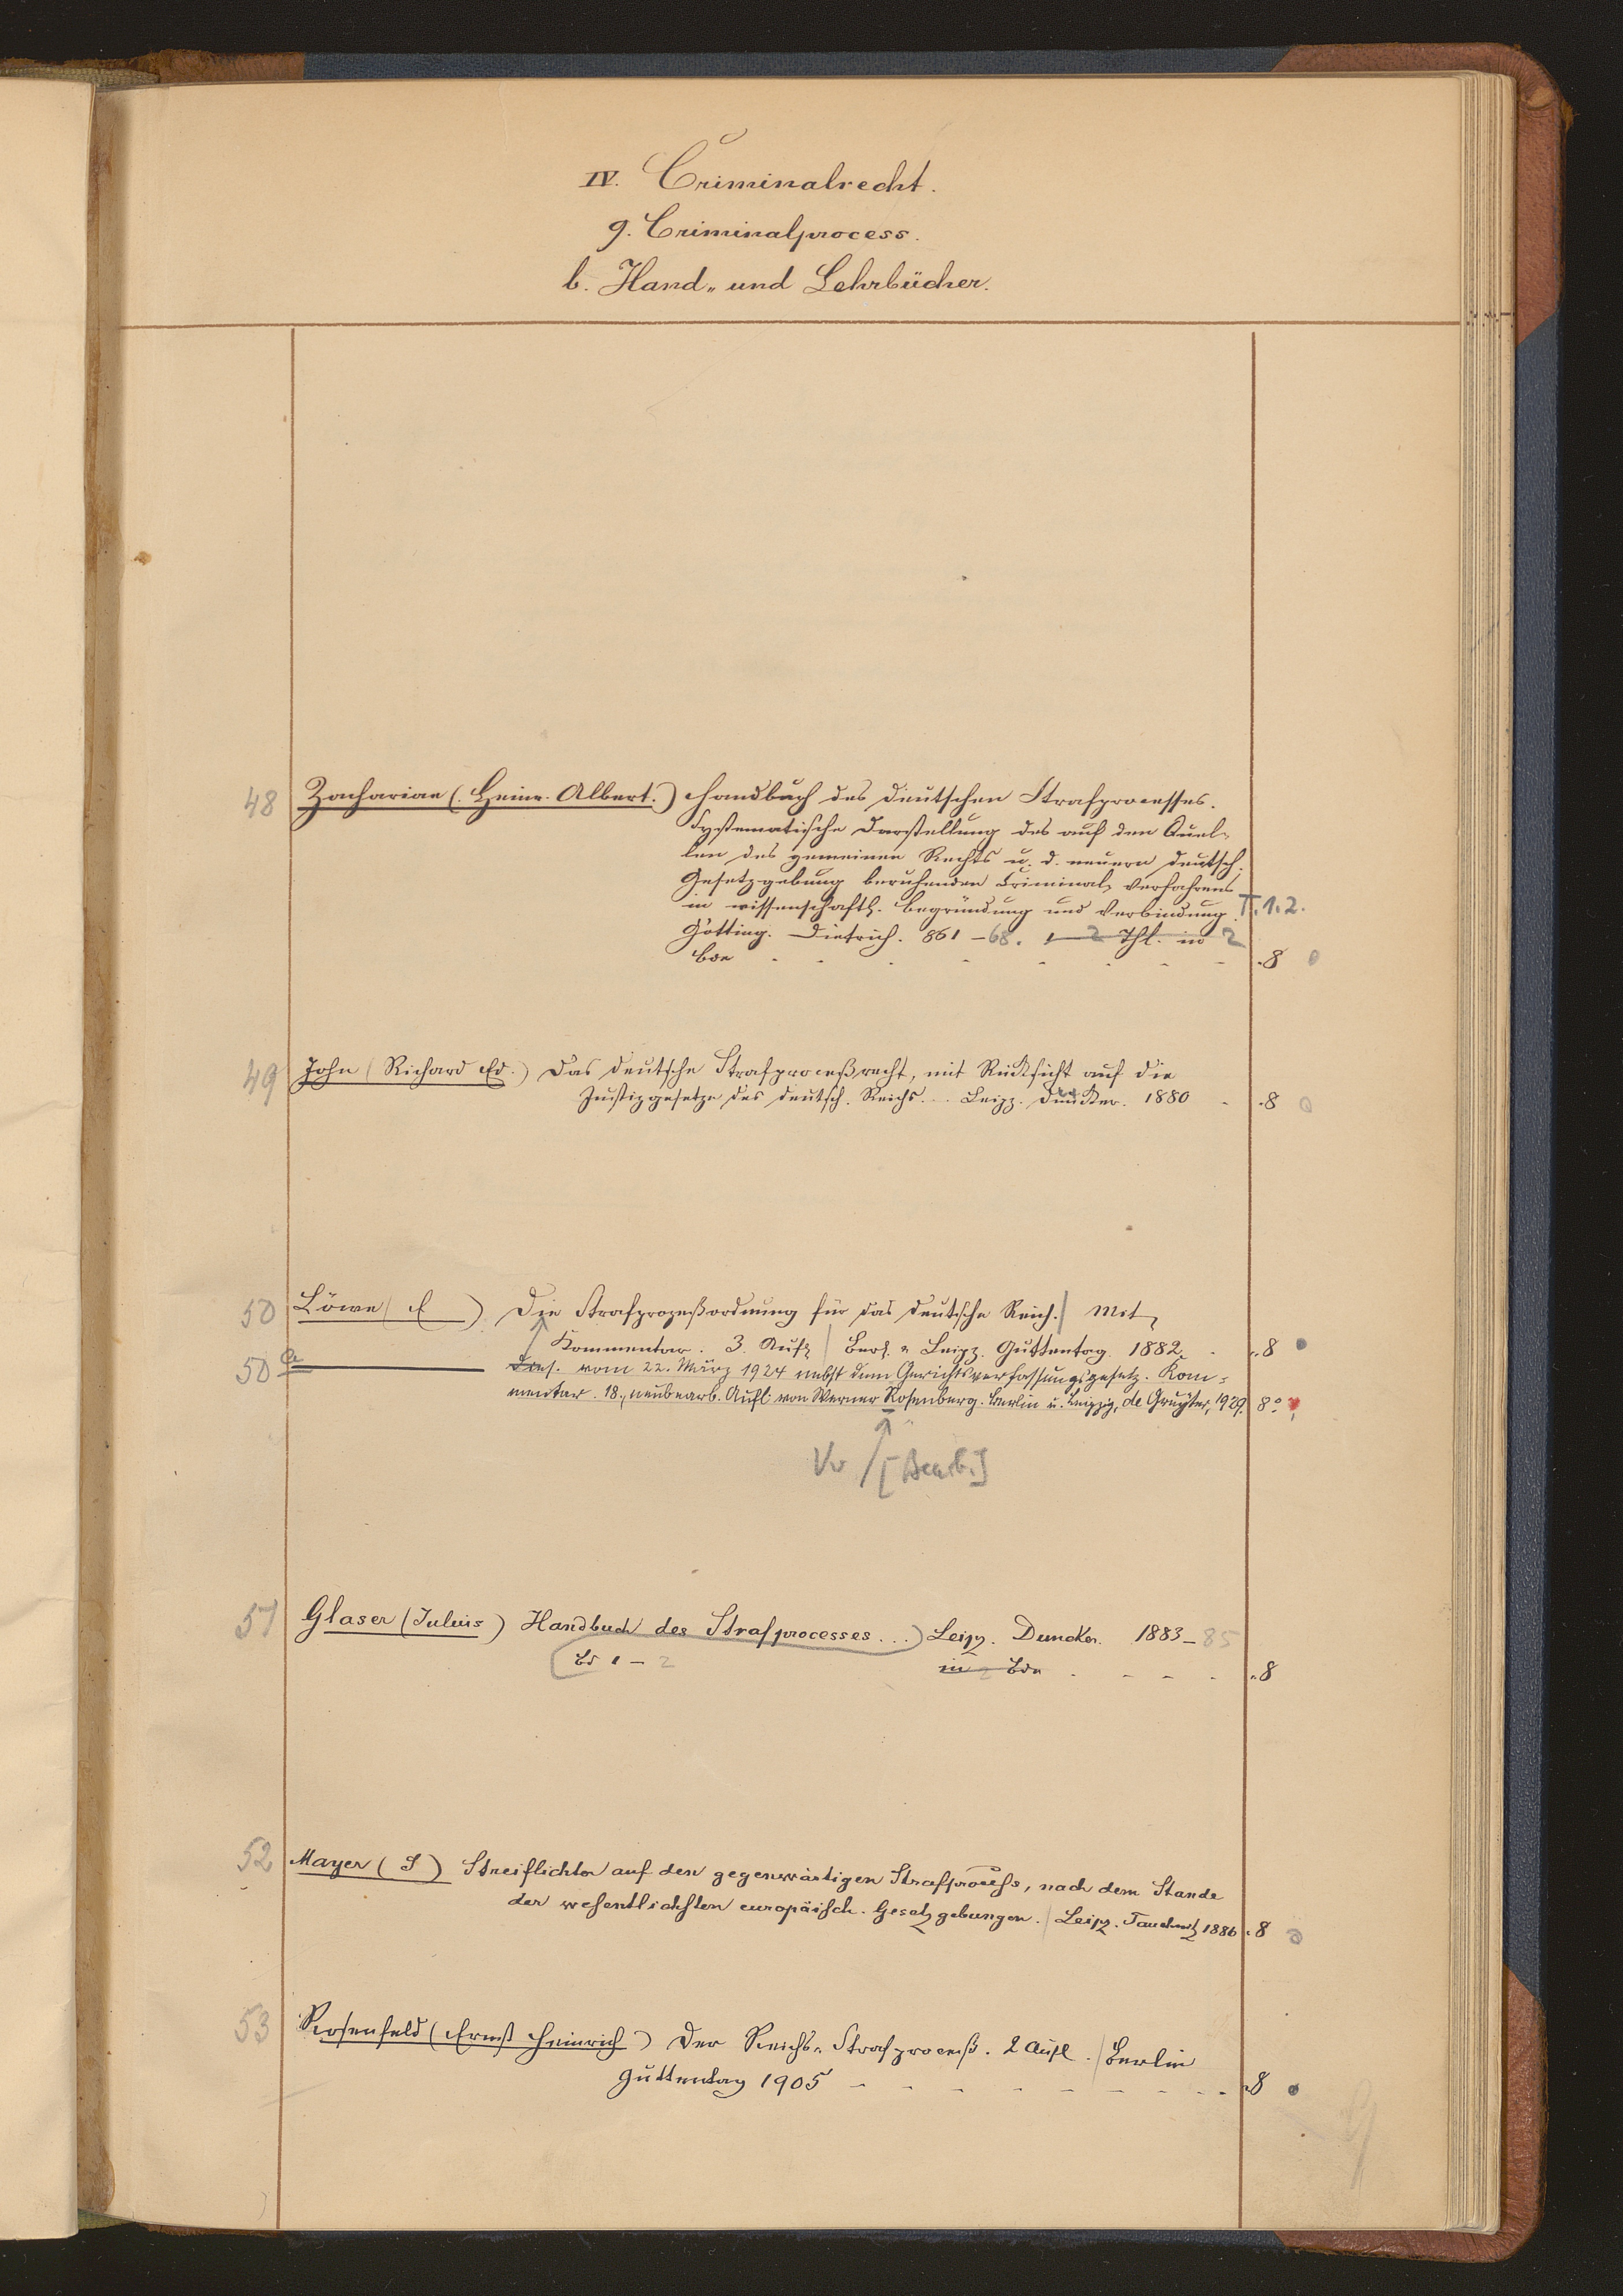 IV. Criminalrecht.
9. Criminalprocess.
b. Hand- und Lehrbücher.
48 Zachariae (Heinr. Albert.) Handbuch des deutschen Strafprocesses.
Systematische Darstellung des auf den Quel-
len des gemeinen Rechts u. d. neuern deutsch.
Gesetzgebung beruhenden Criminal-Verfahrens
in wissenschaftl. Begründung und Verbindung. T. 1. 2.
Götting. Dietrich. 861-68. 1-2 Thl. in 2
Bde - - - - - - - 8
49 John (Richard Ed.) Das deutsche Strafproceßrecht, mit Rücksicht auf die
Justizgesetze des deutsch. Reichs... Leipz. Duncker. 1880 - 8
50 Löwe (E ) Die Strafprozeßordnung für das deutsche Reich. | Mit
Kommentar. 3. Aufl. | Berl. u Leipz. Guttentag. 1882. - 8
50a ——— Dies. vom 22. März 1924 nebst dem Gerichtsverfassungsgesetz. Kom-
mentar. 18., neubearb. Aufl. von Werner Rosenberg. Berlin u. Leipzig, de Gruyter, 1929. 8°
/ [Bearb.]
51 Glaser (Julius) Handbuch des Strafprocesses...) Leipz. Duncker. 1883-85
Bd 1-2 in 2 Bde - - - - 8
52 Mayer (S ) Streiflichter auf den gegenwärtigen Strafproceß, nach dem Stande
der wesentlichsten europäisch. Gesetzgebungen. | Leipz. Tauchnitz 1886 . 8
53 Rosenfeld (Ernst Heinrich) Der Reichs-Strafproceß. 2 Aufl. | Berlin
Guttentag 1905 - - - - - - - - 8